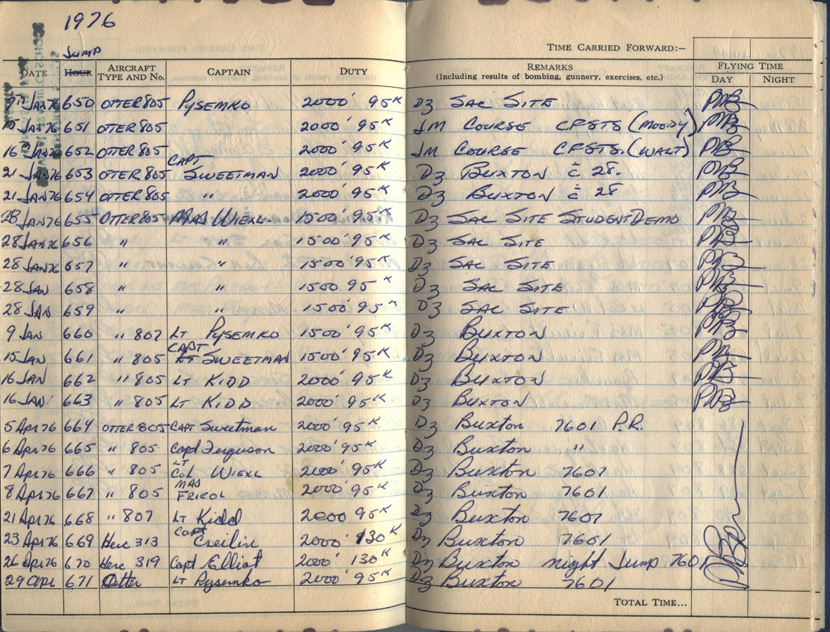 1976
TIME CARRIED FORWARD:–
JUMP
DATE HOUR AIRCRAFT TYPE AND NO. CAPTAIN DUTY REMARKS (Including results of bombing, gunnery, exercises, etc.) FLYING TIME DAY NIGHT
JAN 76 650 OTTER 805 PYSEMKO 2000' 95K DZ SAC SITE
JAN 76 651 OTTER 805 2000' 95K JM COURSE CFSTS (MOODY)
16 JAN 76 652 OTTER 805 2000' 95K JM COURSE CFSTS. (WALT)
21 JAN 76 653 OTTER 805 CAPT SWEETMAN 2000' 95K DZ BUXTON c̄ 28.
21 JAN 76 654 OTTER 805 " 2000' 95K DZ BUXTON c̄ 28
28 JAN 76 655 OTTER 805 WIEKL 1500' 95K DZ SAC SITE STUDENT DEMO
28 JAN 76 656 " " 1500' 95K DZ SAC SITE
28 JAN 76 657 " " 1500' 95K DZ SAC SITE
28 JAN 658 " " 1500 95K DZ SAC SITE
28 JAN 659 " " 1500 95K DZ SAC SITE
9 JAN 660 " 807 LT PYSEMKO 1500' 95K DZ BUXTON
15 JAN 661 " 805 CAPT SWEETMAN 1500' 95K DZ BUXTON
16 JAN 662 " 805 LT KIDD 2000' 95K DZ BUXTON
16 JAN 663 " 805 LT KIDD 2000' 95K DZ BUXTON
5 Apr 76 664 OTTER 805 CAPT Sweetman 2000' 95K DZ Buxton 7601 P.R.
6 Apr 76 665 " 805 Capt Ferguson 2000' 95K DZ Buxton "
7 Apr 76 666 " 805 LT Col WIEKL 2000' 95K DZ Buxton 7601
8 Apr 76 667 " 805 MAJ FRIKOL 2000' 95K DZ Buxton 7601
21 Apr 76 668 " 807 LT Kidd 2000 95K DZ Buxton 7601
23 Apr 76 669 Herc 313 Capt Creilin 2000' 130K DZ Buxton 7601
26 Apr 76 670 Herc 319 Capt Elliot 2000' 130K DZ Buxton night Jump 7601
29 Apr 671 Otter LT Pysemko 2000' 95K DZ Buxton 7601
TOTAL TIME...